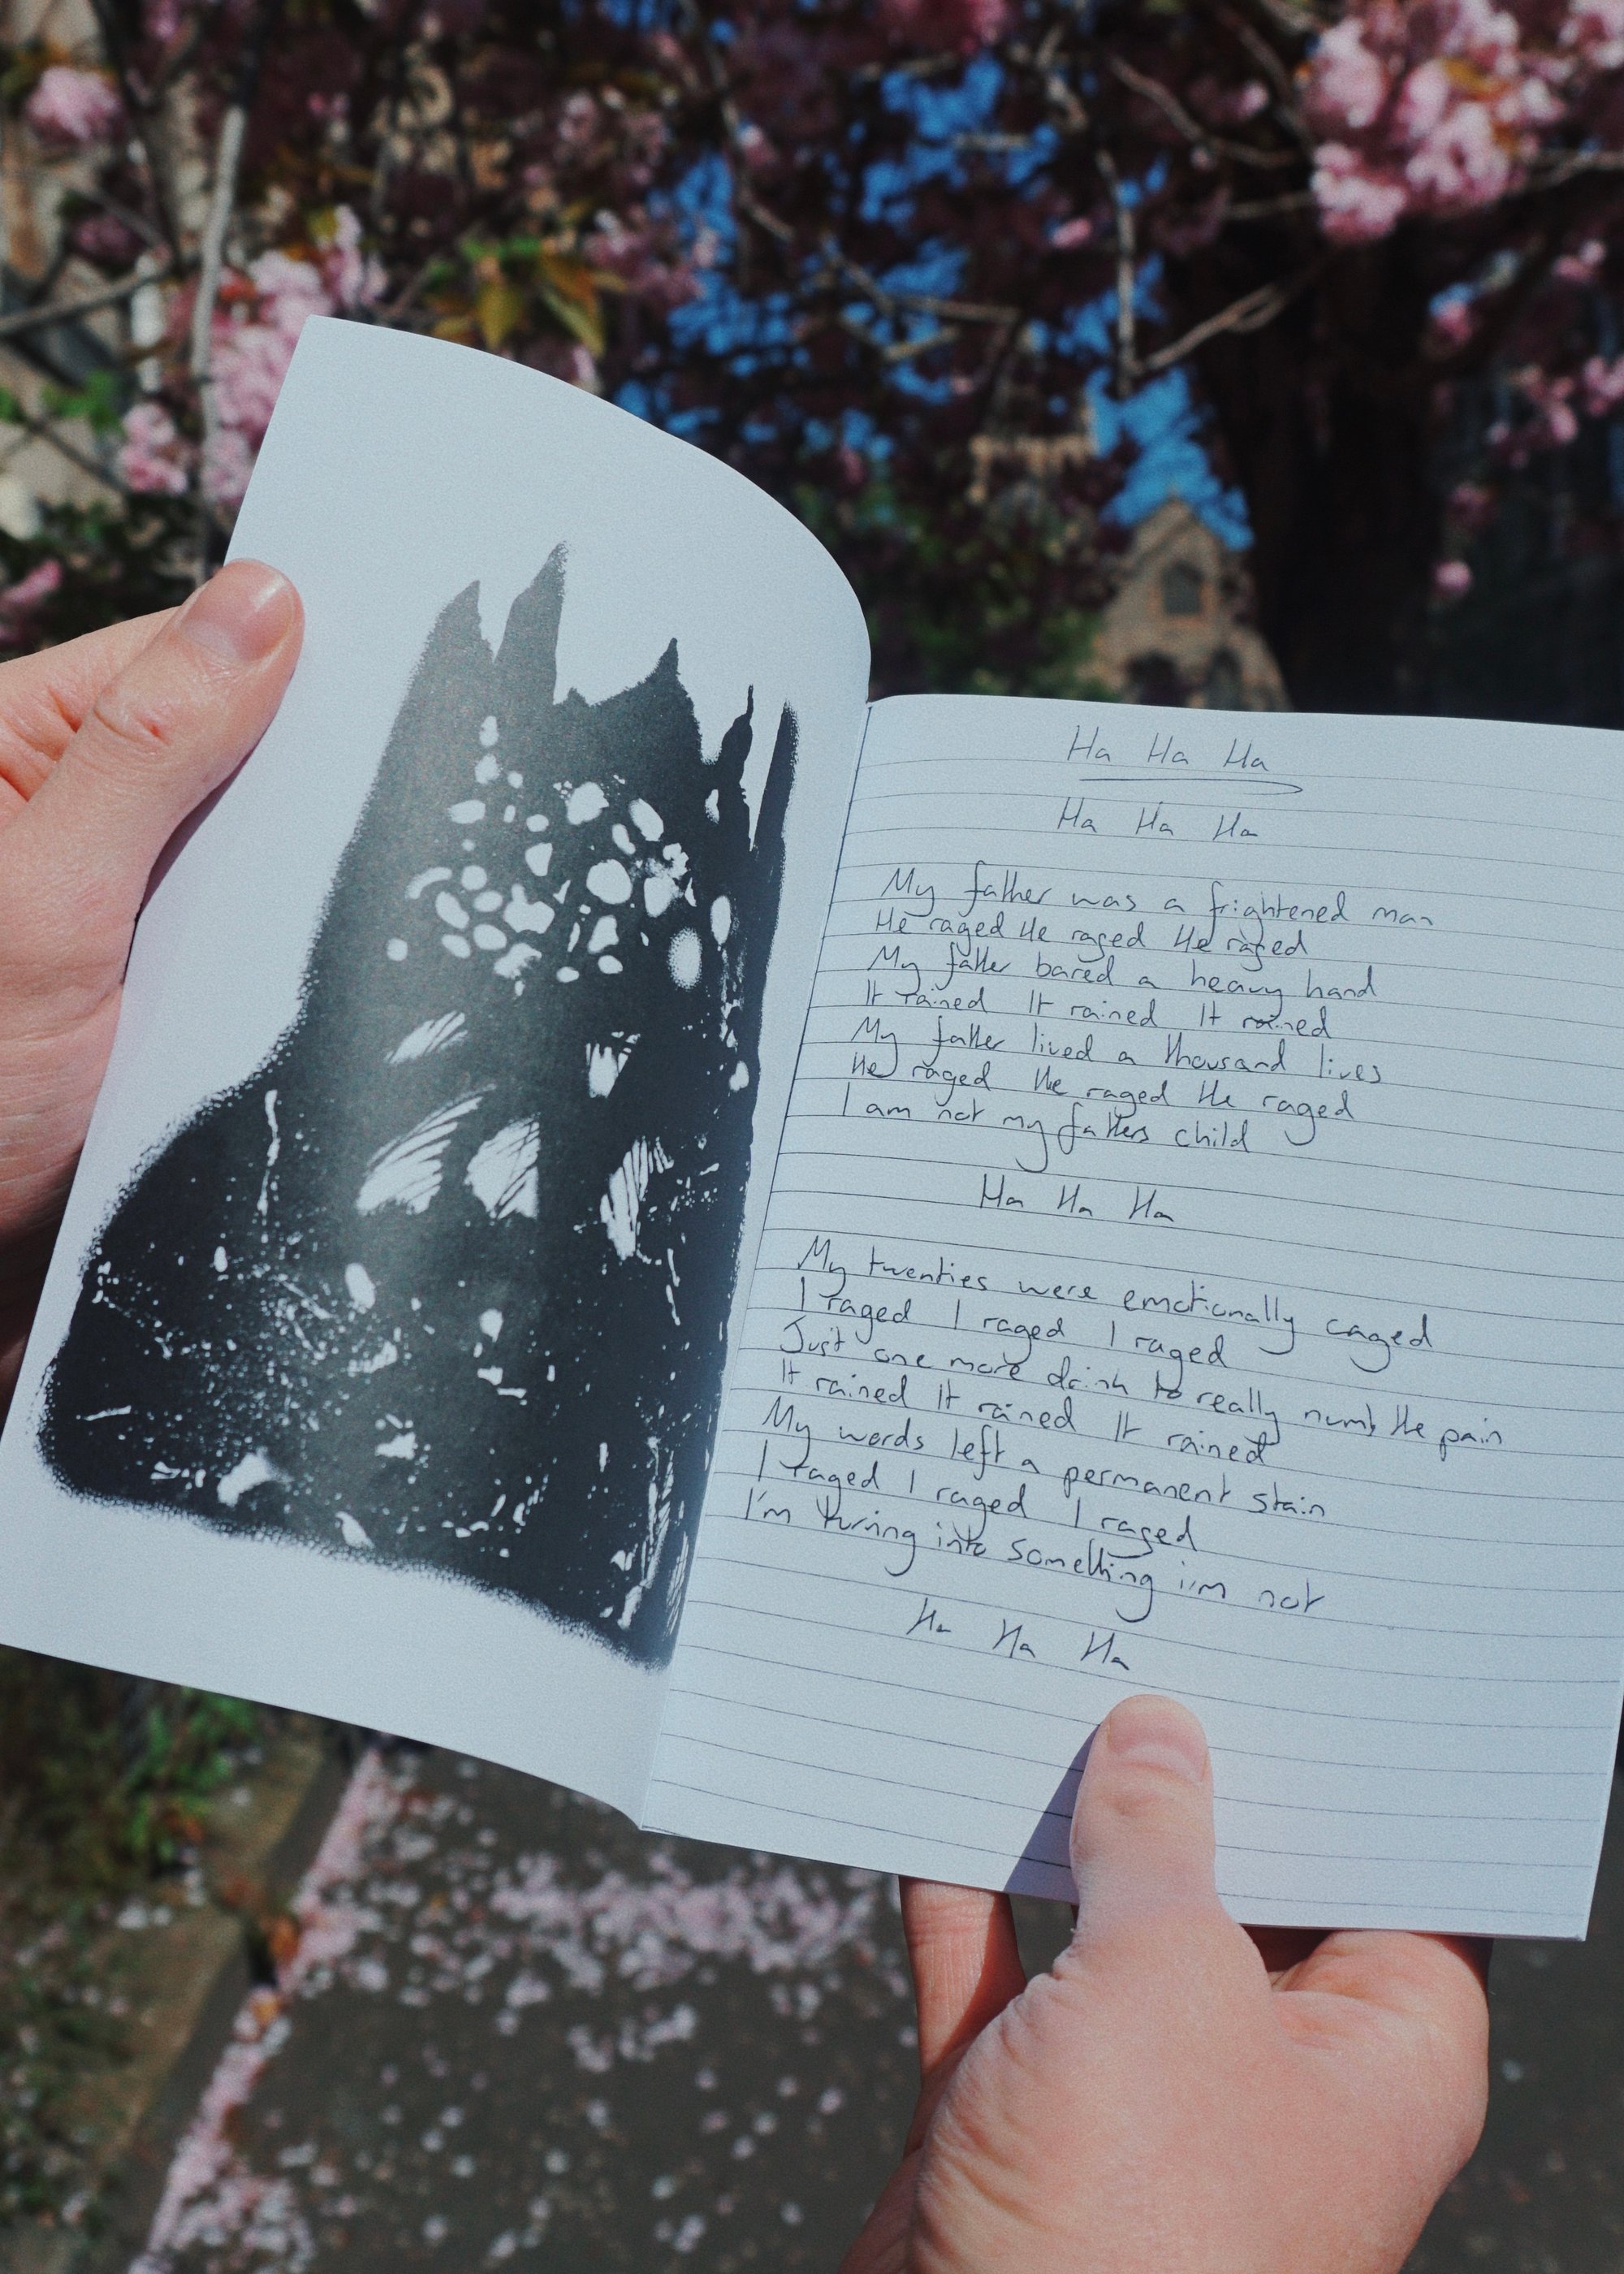 Ha Ha Ha
Ha Ha Ha
My father was a frightened man
He raged He raged He raged
My father bared a heavy hand
It rained It rained It rained
My father lived a thousand lives
He raged He raged He raged
I am not my fathers child
Ha Ha Ha
My twenties were emotionally caged
I raged I raged I raged
Just one more drink to really numb the pain
It rained It rained It rained
My words left a permanent stain
I raged I raged I raged
I'm turning into something i'm not
Ha Ha Ha